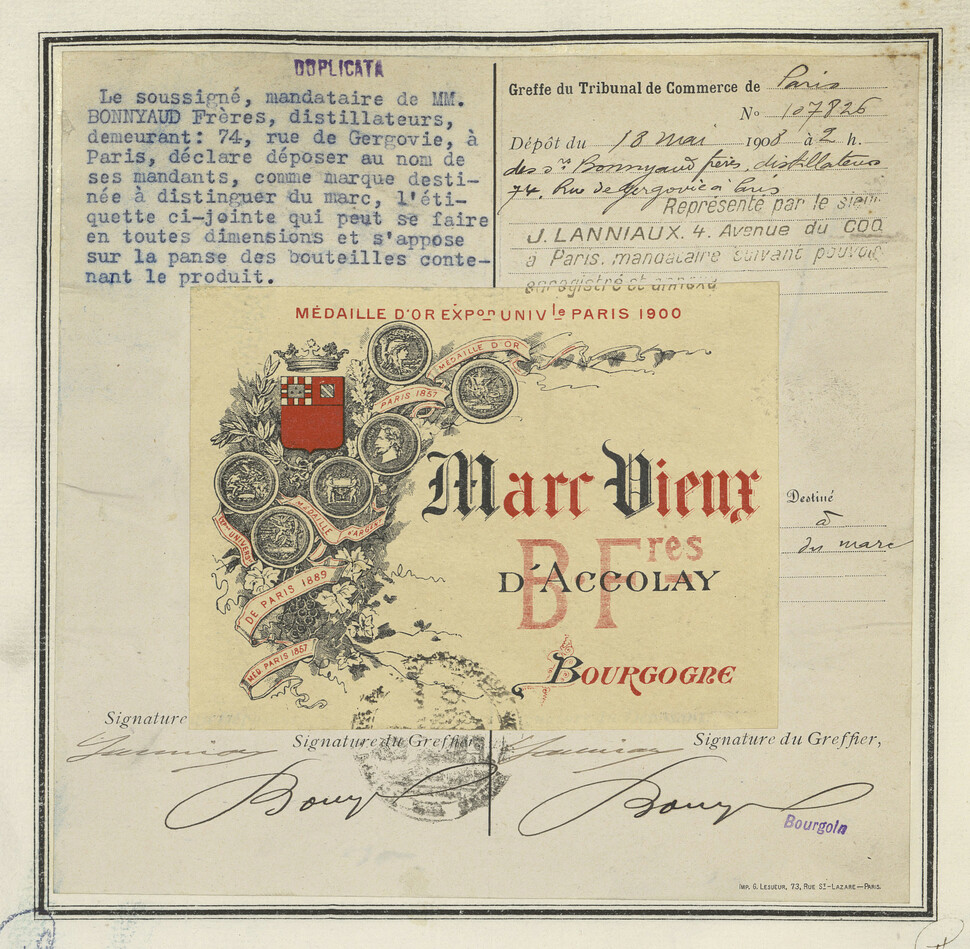 DUPLICATA
Le soussigné, mandataire de MM.
BONNYAUD Frères, distillateurs,
demeurant: 74, rue de Gergovie, à
Paris, déclare déposer au nom de
ses mandants, comme marque desti-
née à distinguer du marc, l'éti-
quette ci-jointe qui peut se faire
en toutes dimensions et s'appose
sur la panse des bouteilles conte-
nant le produit.
Greffe du Tribunal de Commerce de Paris
No 107826
Dépôt du 18 mai 1908 à 2 h.
des Srs Bonnyaud frères, distillateurs
74, Rue de Gergovie à Paris
Représenté par le sieur
J. LANNIAUX. 4. Avenue du COQ
à Paris. mandataire suivant pouvoir
enregistré et annexé
MÉDAILLE D'OR EXPON UNIVLE PARIS 1900
MÉDAILLE D'OR
PARIS 1857
MÉDAILLE D'ARGENT
DE PARIS 1889
MED. PARIS 1857
Marc Vieux
B. Fres
D'ACCOLAY
BOURGOGNE
Destiné
à
du marc
Signature
Signature du Greffier,
Signature du Greffier,
Bourgoin
IMP. G. LESUEUR, 73, RUE ST-LAZARE—PARIS.